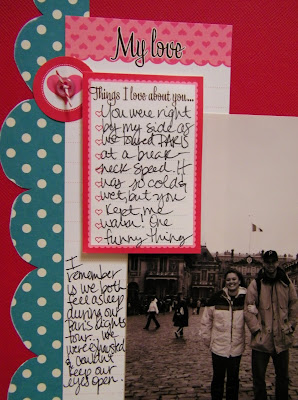 My love
Things I love about you...
You were right
by my side as
we toured PARIS
at a break-
neck speed. It
was so cold &
wet, but you
kept me
warm! One
funny thing
I
remember
is we both
feel asleep
during our
Paris Lights
tour... we
were exhausted
& couldn't
keep our
eyes open.